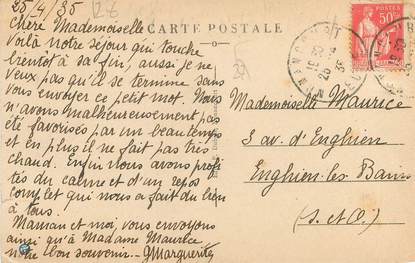 25/4/35
CARTE POSTALE
Chère Mademoiselle
voilà notre séjour qui touche
bientôt à sa fin, aussi je ne
veux pas qu'il se termine sans
vous envoyer ce petit mot. Nous
n'avons malheureusement pas
été favorisés par un beau temps
et en plus il ne fait pas très
chaud. Enfin nous avons profi-
tés du calme et d'un repos
complet qui nous a fait du bien
à tous.
Maman et moi, vous envoyons
ainsi qu'à Madame Maurice
notre bon souvenir - GMarguerite
50
Mademoiselle Maurice
3 av. d'Enghien
Enghien-les-Bains
(S.et O.)